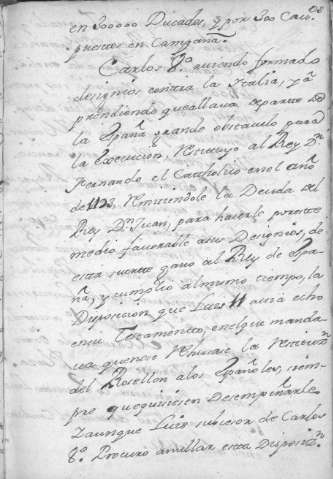 en 300000 Ducados, y por 300 Cavo
puestos en Campaña.
Carlos 8.º aviendo formado
designios contra la Italia, y a
prendiendo que allava separte de
la España grande obstaculo para
la Execucion, Restituyo al Rey D.n
Fernando el Catholico en el año
de Remitiendole la Deuda del
Rey D.n Juan, para hacerle por este
medio favorable a sus Designios, de
esta suerte gano al Rey de Spa
ña, y cumplio al mismo tiempo, la
Disposicion que Luis 11 avia echo
en su Testamento, en el que manda
va que no se Rehusase la Restitucion
del Rosellon a los Españoles, siem
pre que quisiesen Desempeñarle
Y aunque Luis subcesor de Carlos
8.º Procuro anullar esta Disposic.n